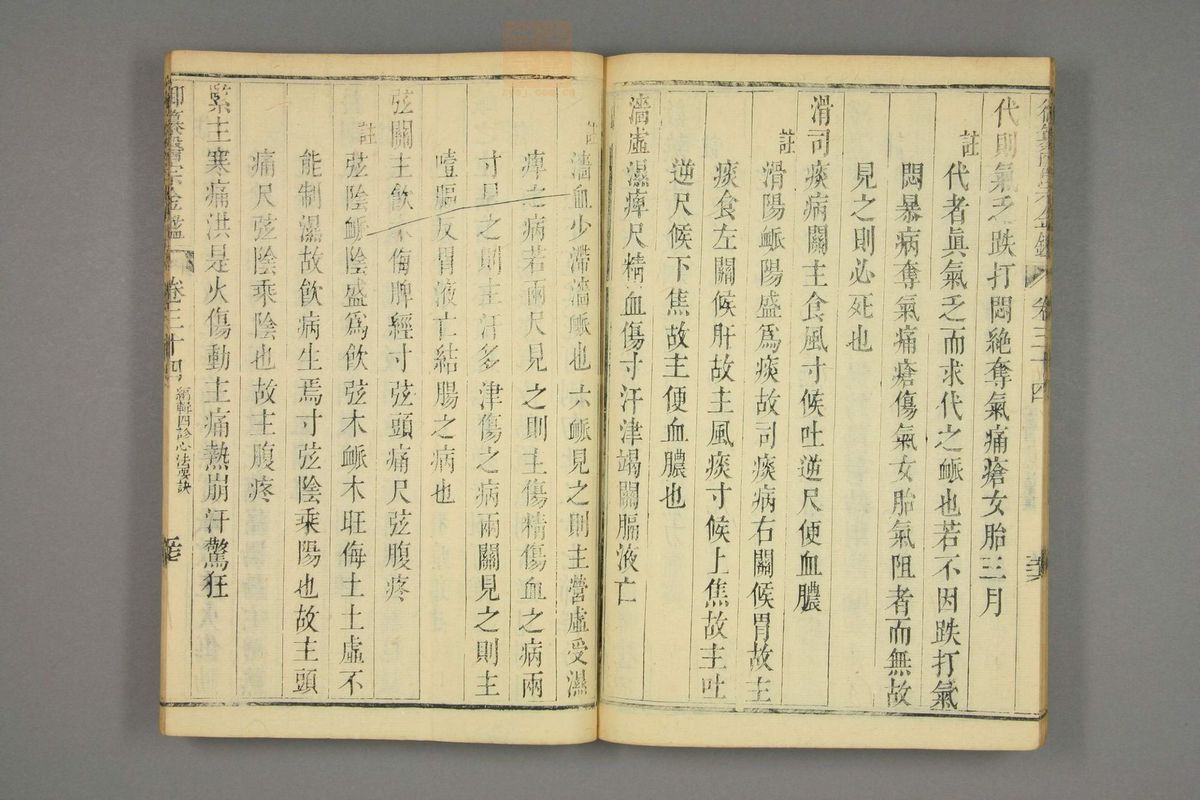 代則氣乏跌打悶絶奪氣痛瘡女胎三月
註
代者眞氣乏而求代之脈也若不因跌打氣
悶暴病奪氣痛瘡傷氣女胎氣阻者而無故
見之則必死也
滑司痰病關主食風寸候吐逆尺便血膿
註
滑陽脈陽盛爲痰故司痰病右關候胃故主
痰食左關候肝故主風痰寸候上焦故主吐
逆尺候下焦故主便血膿也
濇虛濕痺尺精血傷寸汗津竭關膈液亡
註
濇血少滯濇脈也六脈見之則主營虛受濕
痺之病若兩尺見之則主傷精傷血之病兩
寸見之則主汗多津傷之病兩關見之則主
噎膈反胃液亡結腸之病也
弦關主飮木侮脾經寸弦頭痛尺弦腹疼
註
弦陰脈陰盛爲飮弦木脈木旺侮土土虛不
能制濕故飮病生焉寸弦陰乘陽也故主頭
痛尺弦陰乘陰也故主腹疼
緊主寒痛洪是火傷動主痛熱崩汗驚狂
御纂醫宗金鑑
卷三十四
編輯四診心法要訣